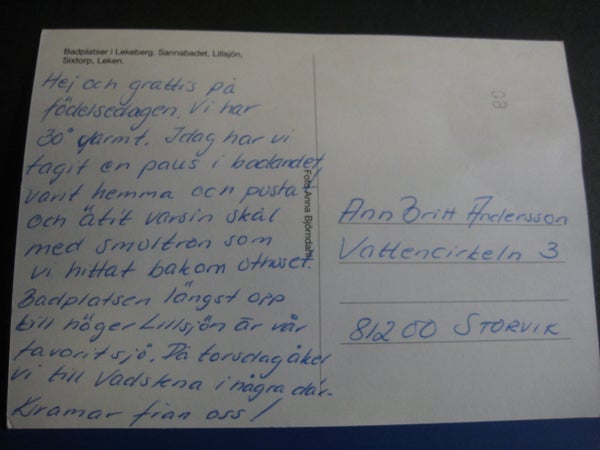 Badplatser i Lekeberg. Sannabadet, Lillsjön,
Sixtorp, Leken.
Hej och grattis på
födelsedagen. Vi har
30° varmt. Idag har vi
tagit en paus i badandet,
varit hemma och pustat
och ätit varsin skål
med smultron som
vi hittat bakom uthuset.
Badplatsen längst opp
till höger Lillsjön är vår
favoritsjö. På torsdag åker
vi till Vadstena i några dar.
Kramar från oss!
Foto Anna Björndahl
Ann Britt Andersson
Vattencirkeln 3
812 00 STORVIK